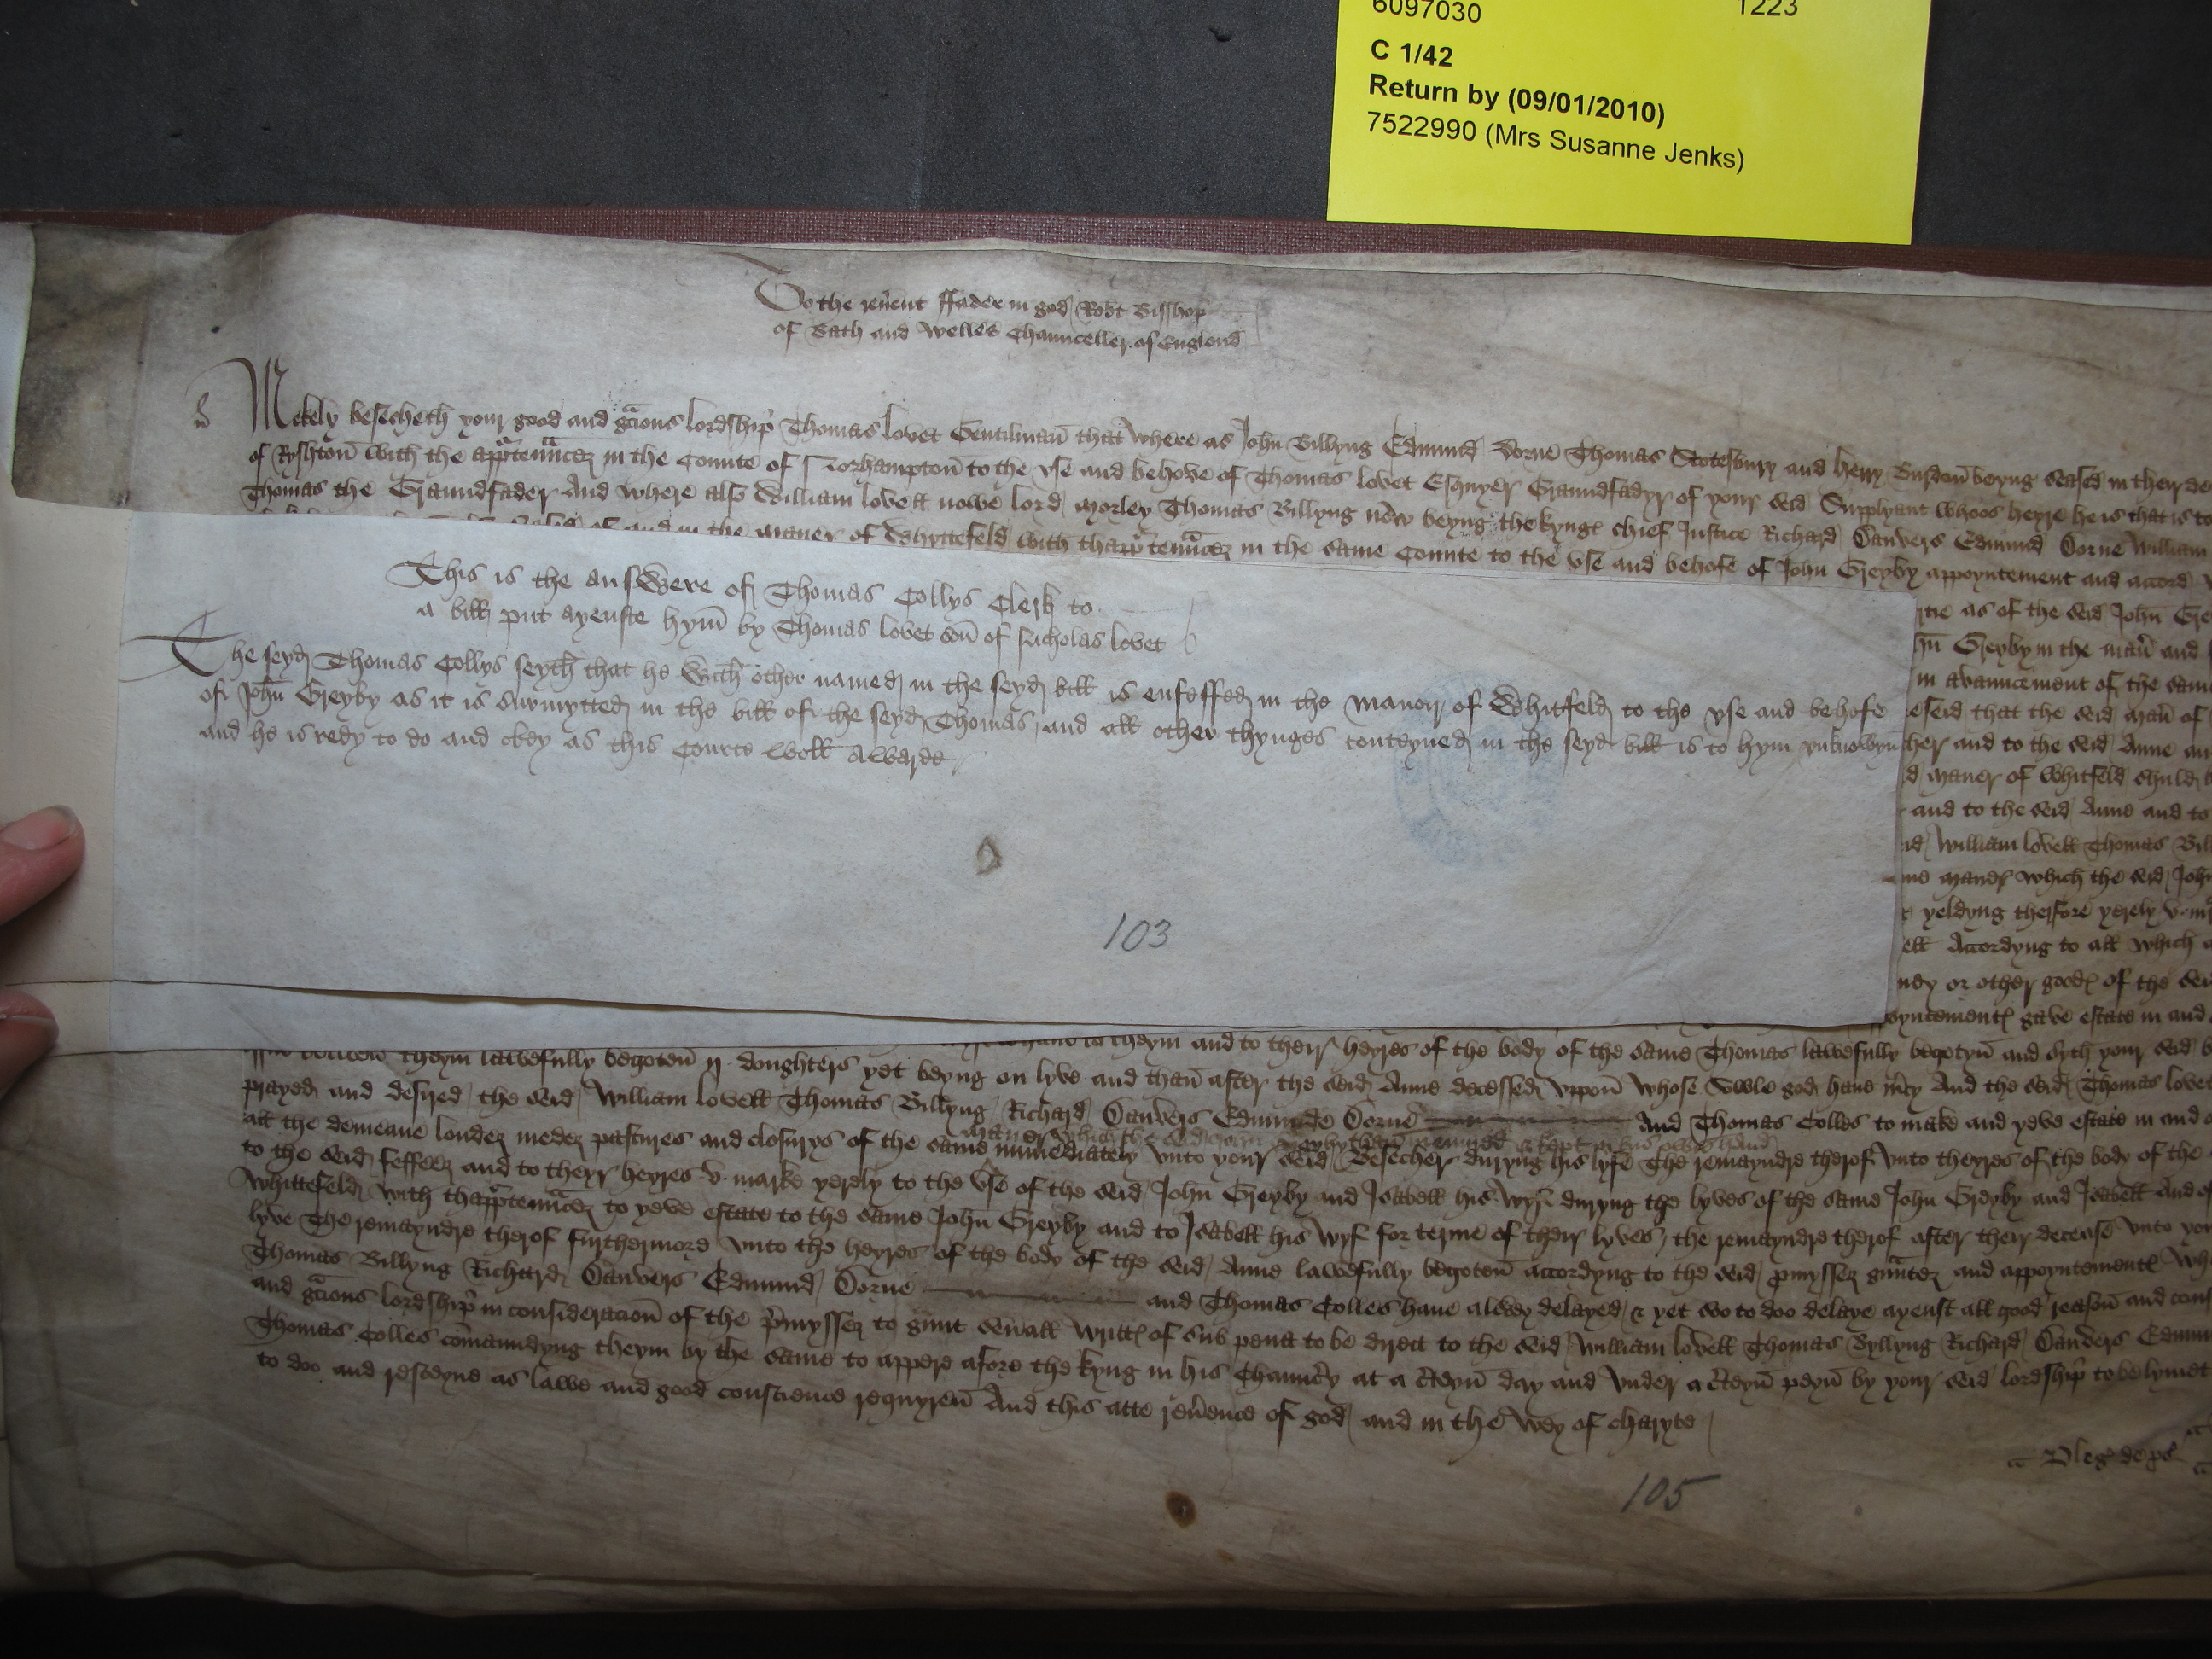 6097030 1223
C 1/42
Return by (09/01/2010)
7522990 (Mrs Susanne Jenks)
To the reu'ent ffader in god Rob't Bisshop
of Bath and Welles Chaunceller of Englond
Mekely besecheth your good and g'cious lordship Thomas lovet Gentilman that where as John Billyng Edmund Dorne Thomas Stotesbury and henry Bursdon beyng seased in their de
of Ryshton with the app'rtenncez in the Counte of Norhampton to the vse and behove of Thomas lovet Esquyer Graundfadyr of your seid Supplyant whoos heyre he is that is to
Thomas the Graundfader And where also William lovell nowe lord morley Thomas Billyng now beyng the kyng chief Justice Richard Danvers Edmund Dorne William
of and in the maner of Whyttefeld with thapp'rtenncez in the same Counte to the vse and behofe of John Greyby appoyntement and accord
This is the answere of Thomas Collys Clerk to
a bill put ayenste hym by Thomas lovet son of Nicholas lovet
The seyd Thomas Collys seyth that he with other named in the seyd bill is enfeffed in the manoir of Whitfeld to the vse and behofe
of John Greyby as it is surmytted in the bill of the seyd Thomas and all other thynges conteyned in the seyd bill is to hym vnknowyn
and he is redy to do and obey as this Courte woll awarde
103
as of the seid John Gre
Greyby in the man' and
in avauncement of the same
that the seid man' of
her and to the seid Anne an
maner of Whitfeld shuld b
and to the seid Anne and to
William lovell Thomas Bill
which the seid John
yeldyng therfore yerely v m
Accordyng to all which
or other good of the sei
gave estate in and
theym lawefully begoten ij doughters yet beyng on lyve and than after the seid Anne decessed vppon whose sowle god haue m'cy And the seid Thomas lovet
theym and to their heyres of the body of the same Thomas lawefully begotyn and syth your seid b
prayed and desired the seid William lovell Thomas Billyng Richard Danvers Edmunde Dorne And Thomas Colles to make and yeve estate in and
maner which the seid John Greyby than remued & kept in his owne hand
all the demeane londez medez pastures and closurys of the same immediately vnto your seid Besecher duryng his lyfe The remayndre therof vnto theyres of the body of the
to the seid feffeez and to theyr heyres v marke yerely to the vse of the seid John Greyby and Isabell his wyf duryng the lyves of the same John Greyby and Isabell And of
Whittefeld with thapp'rtenncez to yeve estate to the same John Greyby and to Isabell his wyf for terme of their lyves the remayndre therof after their decease vnto you
lyve The remayndre therof furthermore vnto the heyres of the body of the seid Anne lawefully begoten accordyng to the seid p'myssez g'untez and appoyntement Wh
Thomas Billyng Richard Danvers Edmund Dorne and Thomas Colles haue alwey delayed & yet so to doo delaye ayenst all good reason and cons
and g'cious lordship in consideracion of the p'myssez to g'unt seu'all writt of sub pena to be direct to the seid William lovell Thomas Byllyng Richard Danvers Edmun
Thomas Colles com'aundyng theym by the same to appere afore the kyng in his Chaunc'y at a c'teyn day and vnder a c'teyn peyn by your seid lordship to be lymet
to doo and resceyue as lawe and good conscience requyren And this atte reu'ence of god and in the wey of charyte
Pleg de ps
105